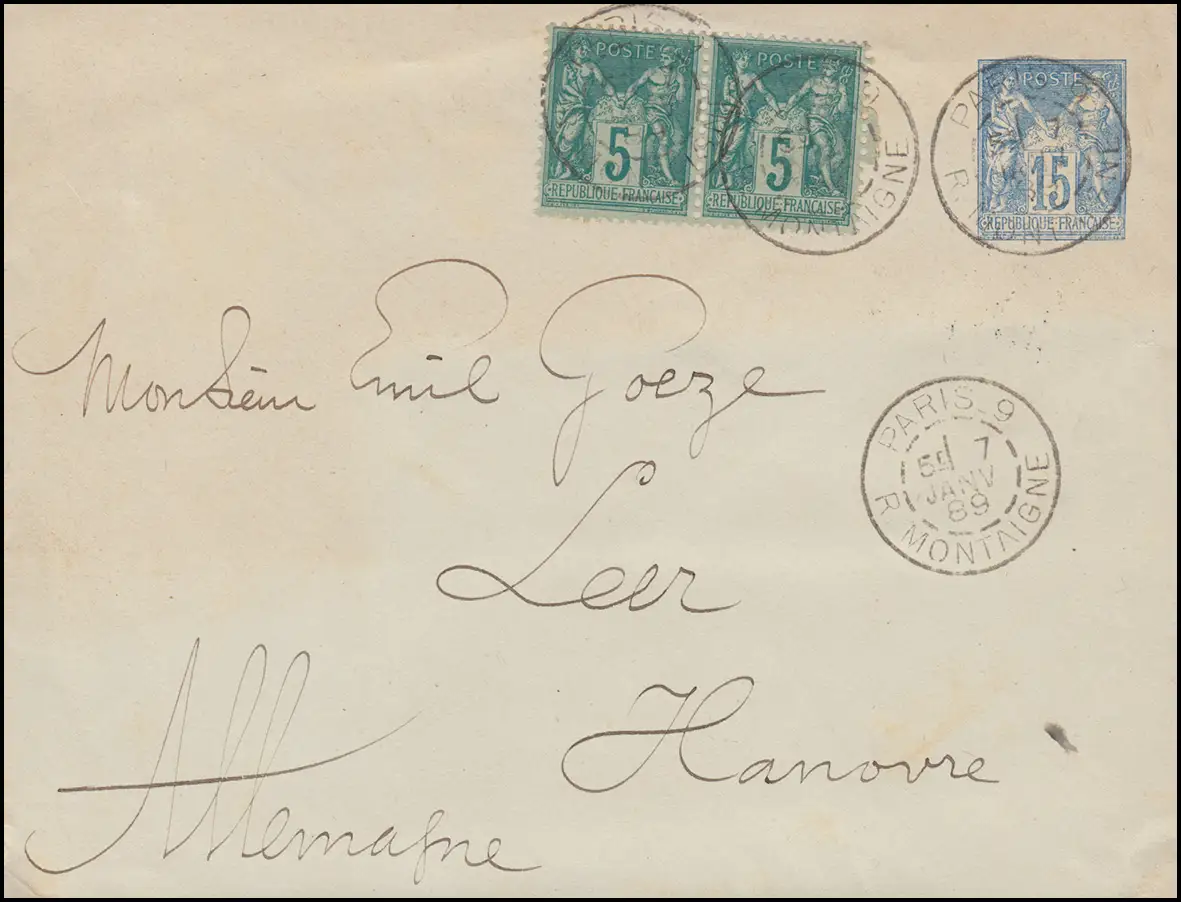 POSTE
5
REPUBLIQUE FRANÇAISE
POSTE
5
REPUBLIQUE FRANÇAISE
MONTAIGNE
POSTE
15
REPUBLIQUE FRANÇAISE
PARIS
Monsieur Emil Goeze
PARIS_9
5E 7
JANV
89
R. MONTAIGNE
Leer
Hanovre
Allemagne